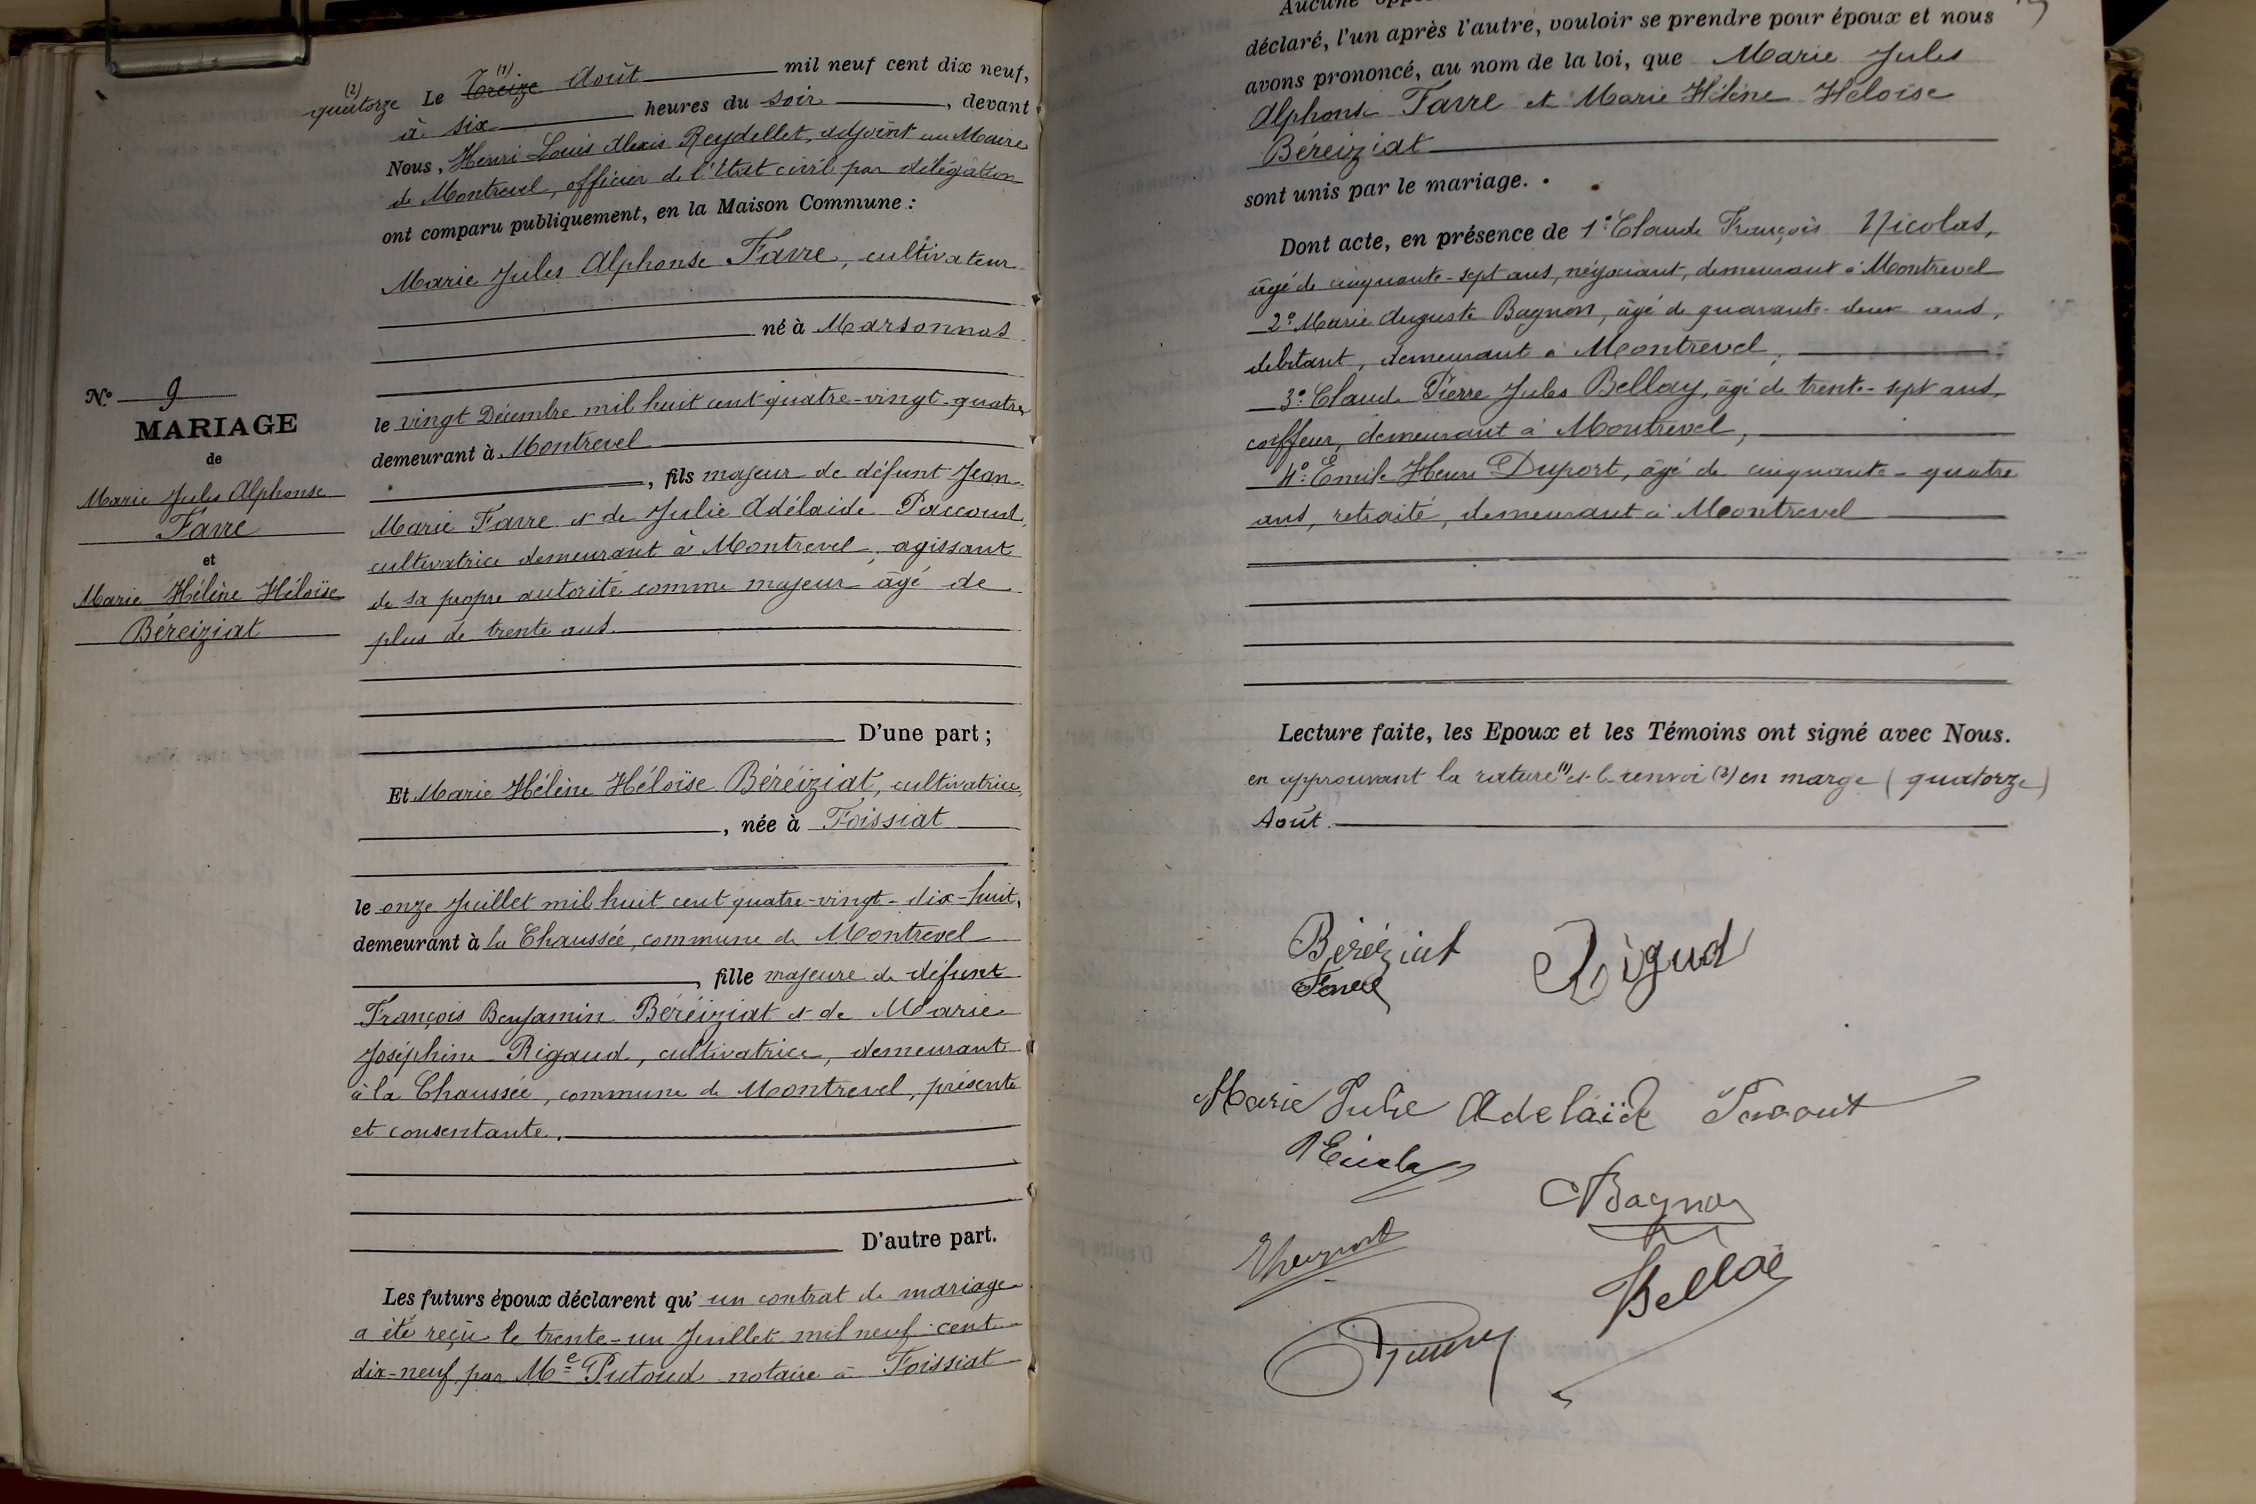 (2) quatorze Le Treize (1) Août mil neuf cent dix neuf,
à six heures du soir, devant
Nous, Henri Louis Alexis Reydellet, adjoint au Maire
de Montrevel, officier de l'Etat civil par délégation
ont comparu publiquement, en la Maison Commune :
Marie Jules Alphonse Favre, cultivateur
né à Marsonnas
N.º 9
MARIAGE
de
Marie Jules Alphonse
Favre
et
Marie Hélène Héloïse
Béréiziat
le vingt Décembre mil huit cent quatre-vingt-quatre,
demeurant à Montrevel
, fils majeur de défunt Jean
Marie Favre et de Julie Adélaide Paccoud,
cultivatrice demeurant à Montrevel, agissant
de sa propre autorité comme majeur âgé de
plus de trente ans.
D'une part ;
Et Marie Hélène Héloïse Béréiziat, cultivatrice,
, née à Foissiat
le onze Juillet mil huit cent quatre-vingt-dix-huit,
demeurant à la Chaussée, commune de Montrevel
, fille majeure de défunt
François Benjamin Béréiziat et de Marie
Joséphine Rigaud, cultivatrice, demeurant
à la Chaussée, commune de Montrevel, présente
et consentante.
D'autre part.
Les futurs époux déclarent qu' un contrat de mariage
a été reçu le trente-un Juillet mil neuf cent
dix-neuf par Me Putoud notaire à Foissiat
Aucune
déclaré, l'un après l'autre, vouloir se prendre pour époux et nous
avons prononcé, au nom de la loi, que Marie Jules
Alphonse Favre et Marie Hélène Héloïse
Béréiziat
sont unis par le mariage.
Dont acte, en présence de 1º Claude François Nicolas,
âgé de cinquante-sept ans, négociant, demeurant à Montrevel
2º Marie Auguste Bagnon, âgé de quarante-deux ans,
débitant, demeurant à Montrevel,
3º Claude Pierre Jules Bellay, âgé de trente-sept ans,
coiffeur, demeurant à Montrevel,
4º Emile Henri Duport, âgé de cinquante-quatre
ans, retraité, demeurant à Montrevel
Lecture faite, les Epoux et les Témoins ont signé avec Nous.
en approuvant la rature (1) et le renvoi (2) en marge (quatorze)
Août.
Béréiziat Rigud
Favre
Marie Julie Adelaïde
Bagnon